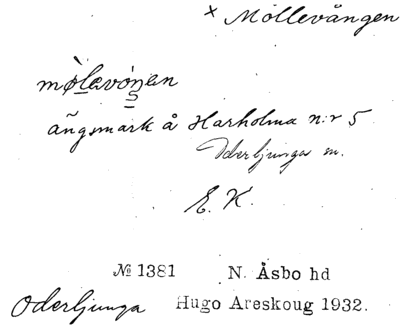 × Möllevången
mø̀lavóŋan
ängsmark å Harholma n:r 5
Oderljunga sn.
E. K.
№ 1381 N. Åsbo hd
Oderljunga Hugo Areskoug 1932.